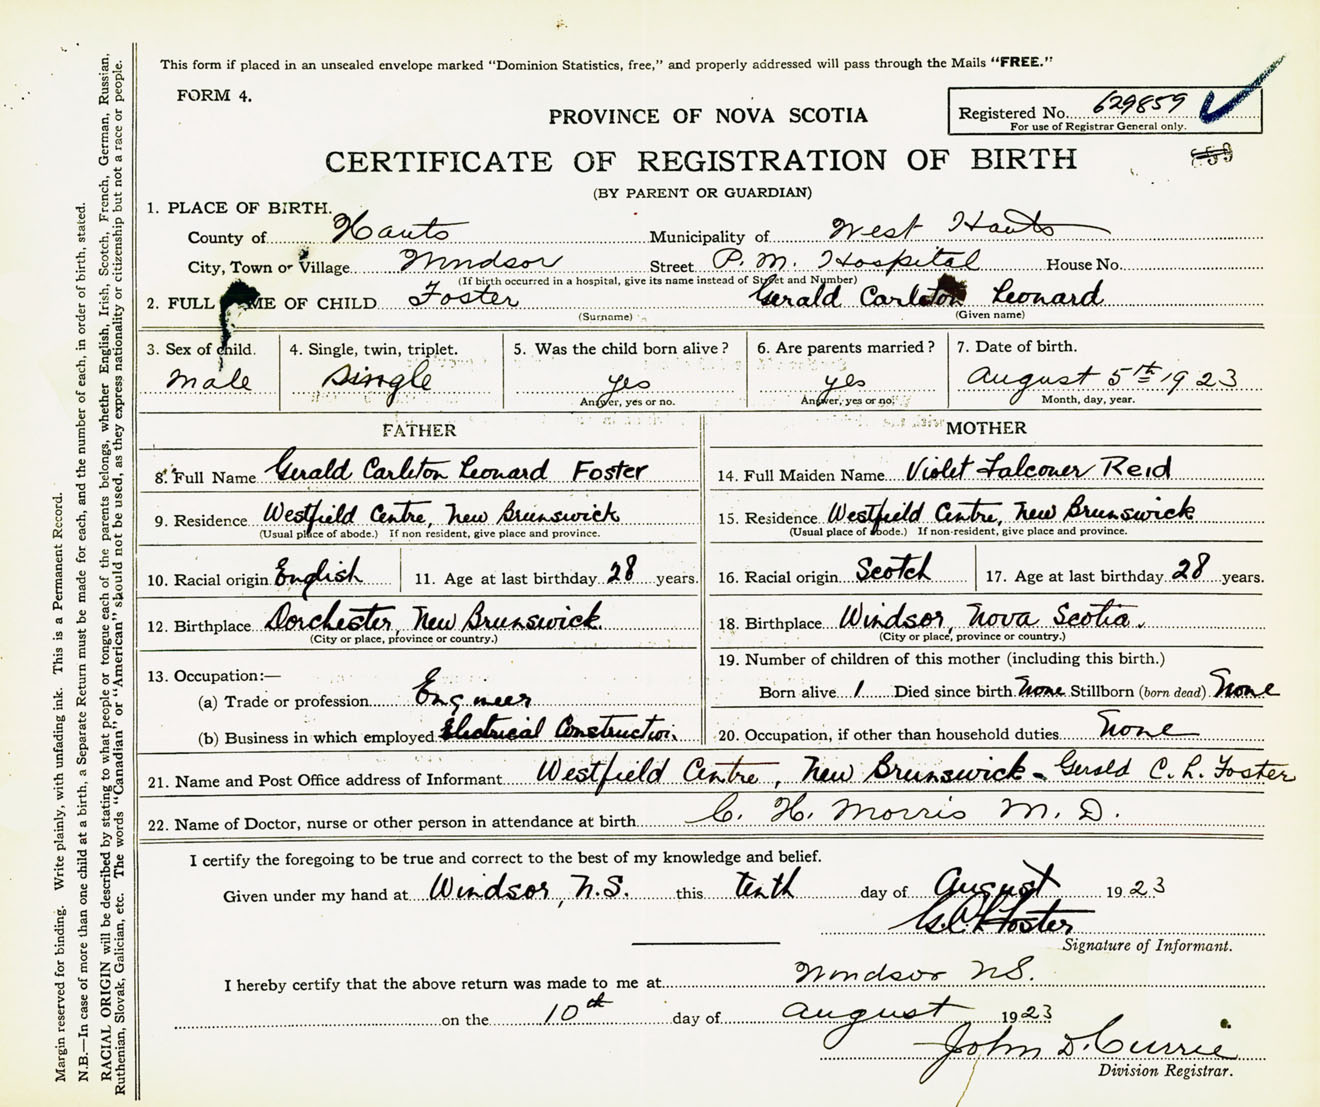 This form if placed in an unsealed envelope marked "Dominion Statistics, free," and properly addressed will pass through the Mails "FREE."
FORM 4.
PROVINCE OF NOVA SCOTIA
Registered No. 629859
For use of Registrar General only.
CERTIFICATE OF REGISTRATION OF BIRTH
(BY PARENT OR GUARDIAN)
1. PLACE OF BIRTH.
County of Hants Municipality of West Hants
City, Town or Village Windsor Street P. M. Hospital House No.
(If birth occurred in a hospital, give its name instead of Street and Number)
2. FULL NAME OF CHILD Foster Gerald Carleton Leonard
(Surname) (Given name)
3. Sex of child. 4. Single, twin, triplet. 5. Was the child born alive? 6. Are parents married? 7. Date of birth.
male single yes yes august 5th 1923
Answer, yes or no. Answer, yes or no. Month, day, year.
FATHER MOTHER
8. Full Name Gerald Carleton Leonard Foster 14. Full Maiden Name Violet Falconer Reid
9. Residence Westfield Centre, New Brunswick 15. Residence Westfield Centre, New Brunswick
(Usual place of abode.) If non resident, give place and province. (Usual place of abode.) If non-resident, give place and province.
10. Racial origin English 11. Age at last birthday 28 years. 16. Racial origin Scotch 17. Age at last birthday 28 years.
12. Birthplace Dorchester, New Brunswick. 18. Birthplace Windsor, Nova Scotia.
(City or place, province or country.) (City or place, province or country.)
13. Occupation:— 19. Number of children of this mother (including this birth.)
(a) Trade or profession Engineer Born alive 1 Died since birth None Stillborn (born dead) None
(b) Business in which employed Electrical Construction. 20. Occupation, if other than household duties None
21. Name and Post Office address of Informant Westfield Centre, New Brunswick - Gerald C. L. Foster
22. Name of Doctor, nurse or other person in attendance at birth C. H. Morris M. D.
I certify the foregoing to be true and correct to the best of my knowledge and belief.
Given under my hand at Windsor, N.S. this tenth day of August 1923
G.C.L. Foster
Signature of Informant.
I hereby certify that the above return was made to me at Windsor NS.
on the 10th day of august 1923
John D. Currie
Division Registrar.
Margin reserved for binding. Write plainly, with unfading ink. This is a Permanent Record.
N.B.—In case of more than one child at a birth, a Separate Return must be made for each, and the number of each, in order of birth, stated.
RACIAL ORIGIN will be described by stating to what people or tongue each of the parents belongs, whether English, Irish, Scotch, French, German, Russian,
Ruthenian, Slovak, Galician, etc. The words "Canadian" or "American" should not be used, as they express nationality or citizenship but not a race or people.